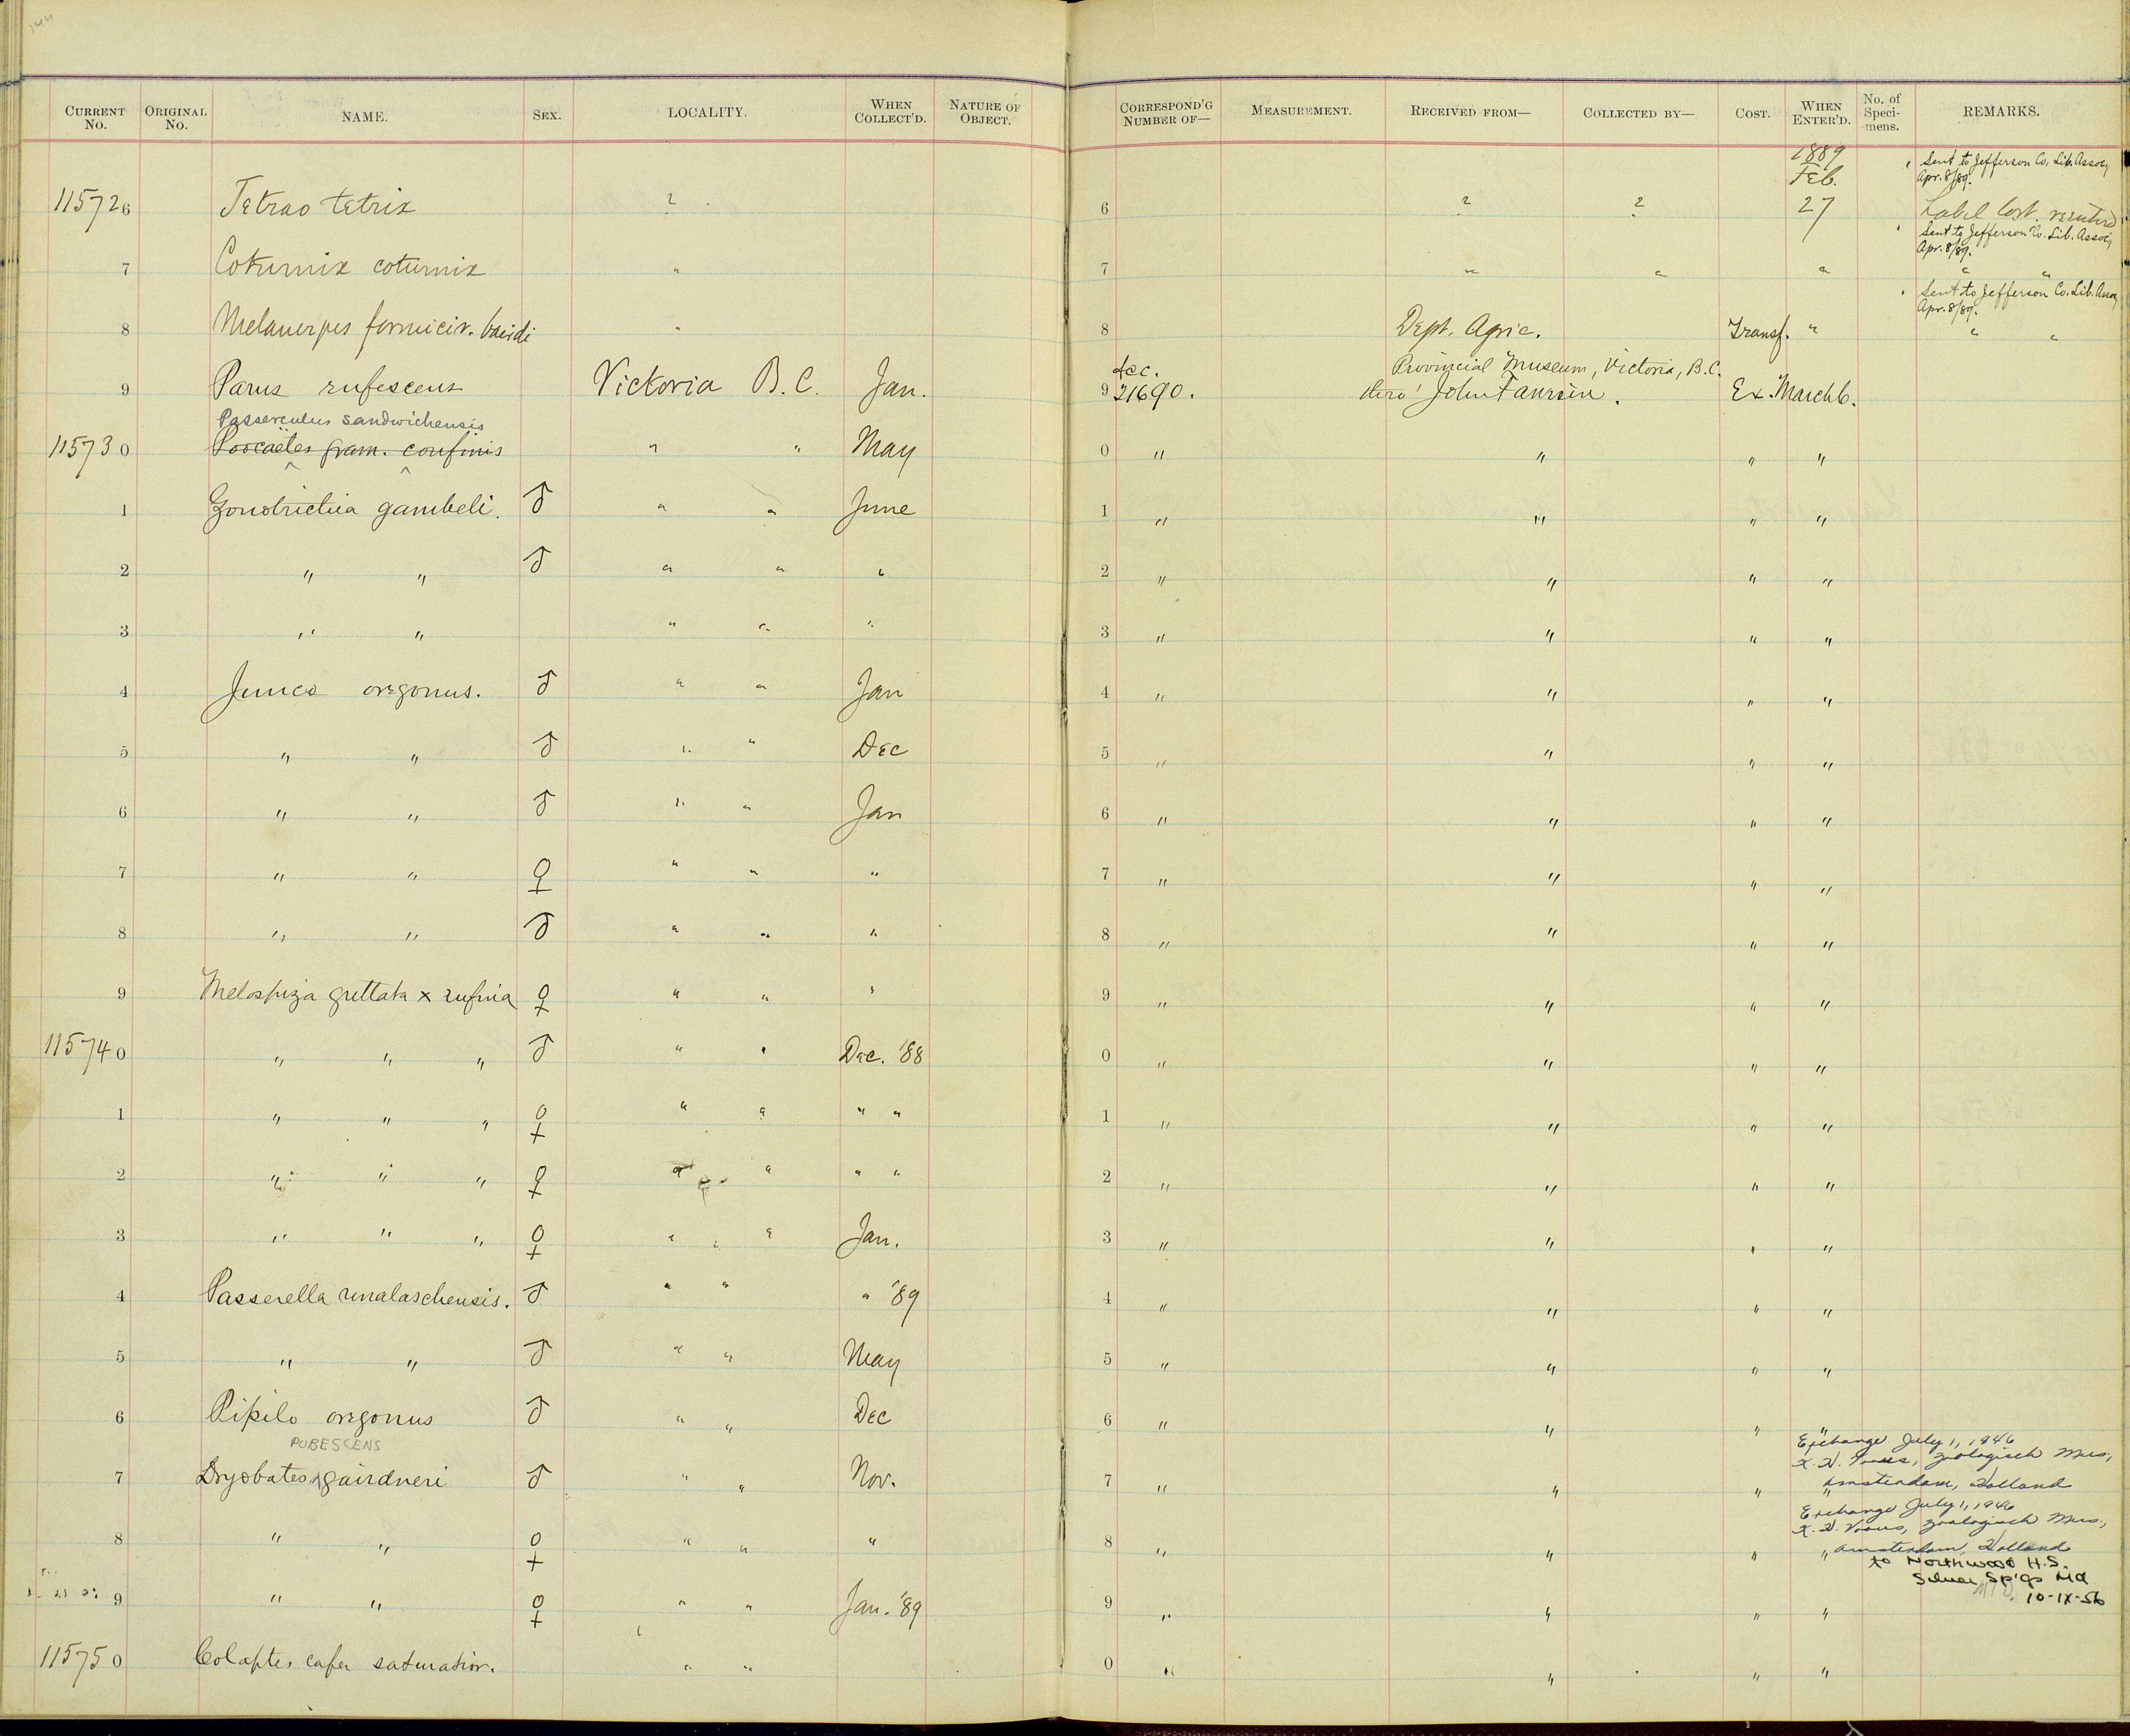 144
CURRENT No. ORIGINAL No. NAME. SEX. LOCALITY. WHEN COLLECT'D. NATURE OF OBJECT. CORRESPOND'G NUMBER OF— MEASUREMENT. RECEIVED FROM— COLLECTED BY— COST. WHEN ENTER'D. No. of Speci-mens. REMARKS.
1889 Sent to Jefferson Co. Lib. Assoc,
Feb. Apr. 8/89.
115726 Tetrao tetrix ? 6 ? ? 27 Label lost.
Sent to Jefferson Co. Lib. Assoc,
Apr. 8/89.
7 Coturnix coturnix " 7 " " " " "
Sent to Jefferson Co. Lib. Assoc,
Apr. 8/89.
8 Melanerpes formiciv. bairdi " 8 Dept. Agric. Transf. " " "
acc. Provincial Museum, Victoria, B.C.
9 Parus rufescens Victoria B.C. Jan. 9 21690. thro' John Fannin. Ex. March 6.
Passerculus sandwichensis
115730 Poocaetes gram. confinis " " May 0 " " " "
1 Zonotrichia gambeli. ♂ " " June 1 " " " "
2 " " ♂ " " " 2 " " " "
3 " " " " " 3 " " " "
4 Junco oregonus. ♂ " " Jan 4 " " " "
5 " " ♂ " " Dec 5 " " " "
6 " " ♂ " " Jan 6 " " " "
7 " " ♀ " " " 7 " " " "
8 " " ♂ " " " 8 " " " "
9 Melospiza guttata x rufina ♀ " " " 9 " " " "
115740 " " " ♂ " " Dec. '88 0 " " " "
1 " " " ♀ " " " " 1 " " " "
2 " " " ♀ " " " " 2 " " " "
3 " " " ♀ " " Jan. 3 " " " "
4 Passerella unalaschensis. ♂ " " " '89 4 " " " "
5 " " ♂ " " May 5 " " " "
6 Pipilo oregonus ♂ " " Dec 6 " " " "
PUBESCENS
Exchange July 1, 1946
K. H. Voous, Zoologisch Mus.,
7 Dryobates gairdneri ♂ " " Nov. 7 " " " " Amsterdam, Holland
Exchange July 1, 1946
K. H. Voous, Zoologisch Mus.,
8 " " ♀ " " " 8 " " " " Amsterdam, Holland
to Northwood H.S.
Silver Sp'gs Md
10-IX-56
9 " " ♀ " " Jan. '89 9 " " " "
115750 Colaptes cafer saturatior. " " 0 " " " "